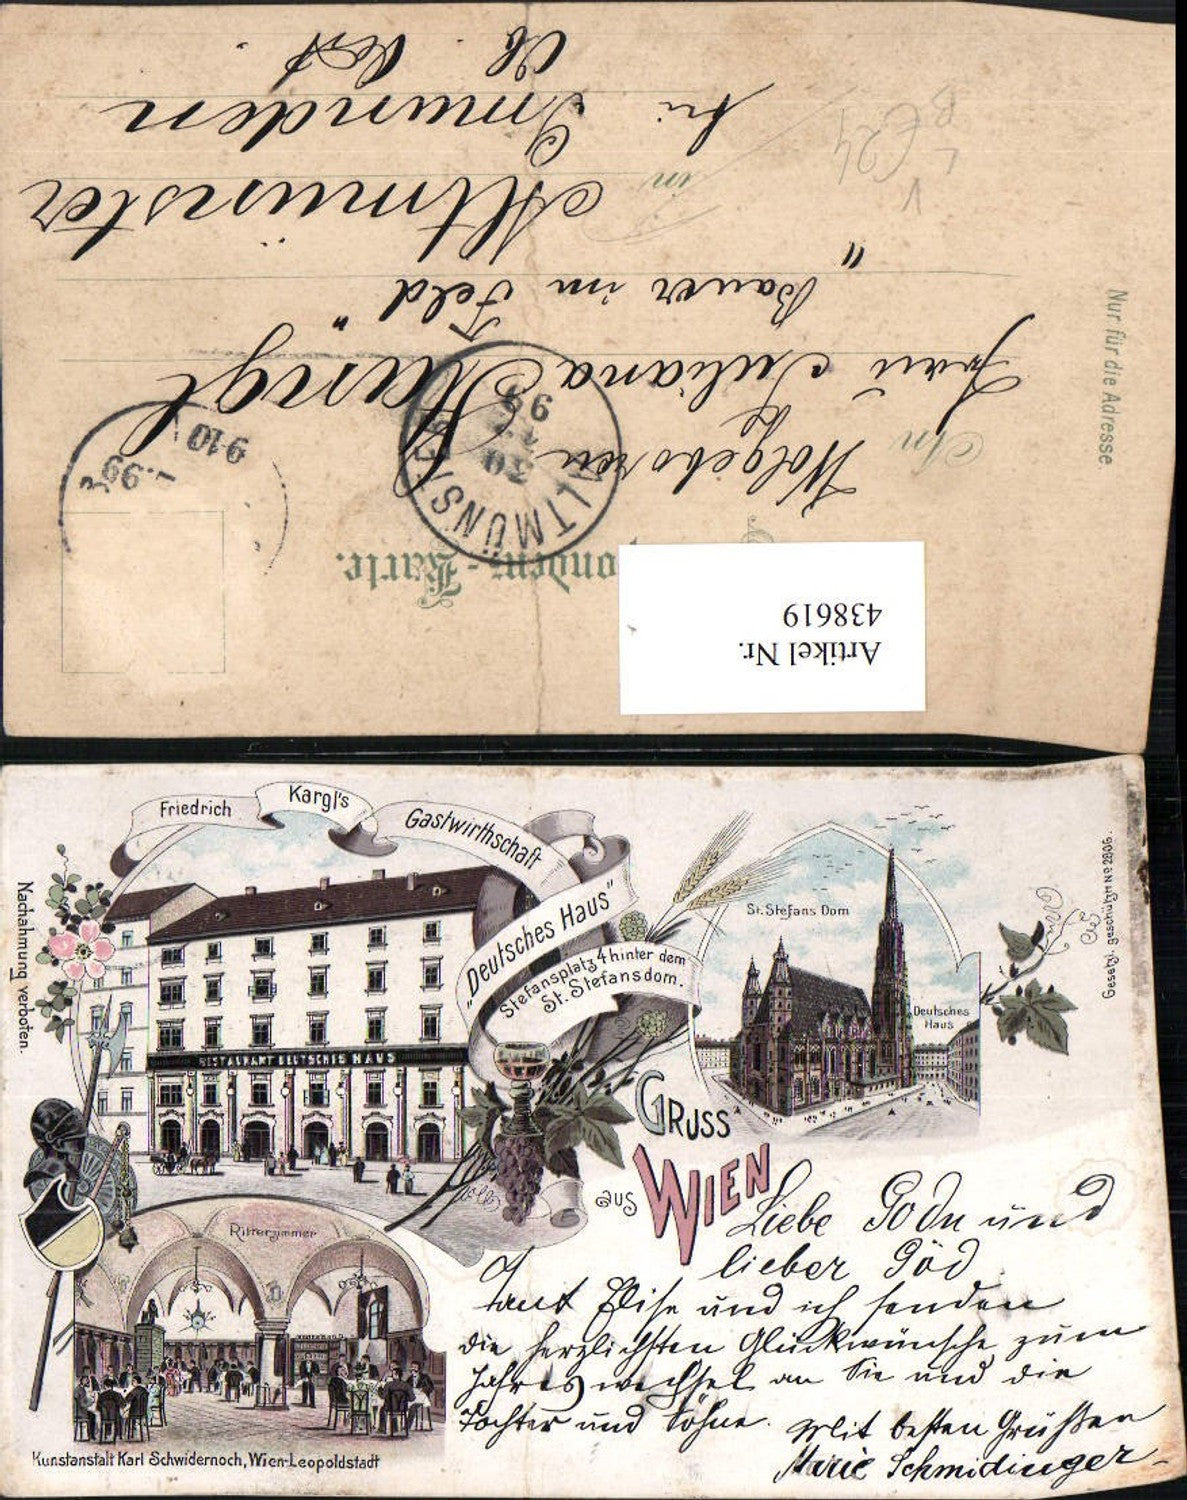 Nur für die Adresse
Correspondenz-Karte.
An
Wolgeboren
Frau Juliana Stangl
"Bauer im Feld"
in Altmünster
bei Gmunden
Ob. Öst.
ALTMÜNSTER
30
99
9·10
..99
V
L
BC24
Artikel Nr.
438619
Friedrich Kargl's Gastwirthschaft
"Deutsches Haus"
Stefansplatz 4 hinter dem
St. Stefansdom.
RESTAURANT DEUTSCHES HAUS
St. Stefans Dom
Deutsches
Haus
Gesetzl. geschützt No 2806.
Nachahmung verboten.
Gruss
aus Wien
Ritterzimmer
Kunstanstalt Karl Schwidernoch, Wien-Leopoldstadt
Liebe Godn und
lieber Göd
Tant Elise und ich senden
die herzlichsten Glückwünsche zum
Jahreswechsel an Sie und die
Töchter und Söhne. Mit besten Grüßen
Marie Schmidinger